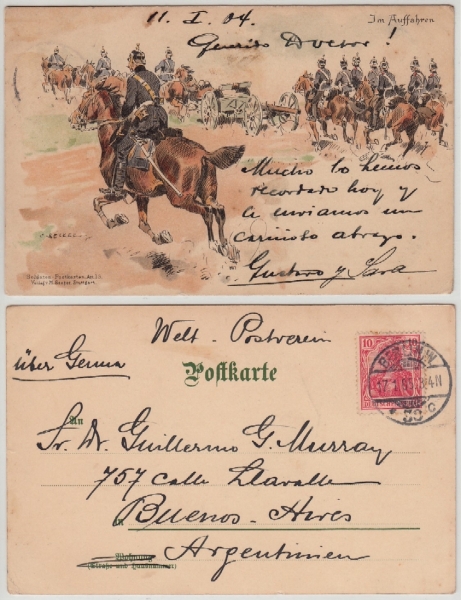 11. I. 04.
Im Auffahren
Querido Doctor!
Mucho lo hemos
recordado hoy y
le enviamos un
cariñoso abrazo.
Gustavo y Sara
Stuttgart.
Welt-Postverein
über Genua
Postkarte
10
BERLIN NW
An
Sr. Dr. Guillermo G. Murray
757 calle Lavalle
in Buenos-Aires
Argentinien
Wohnung
(Straße und Hausnummer)